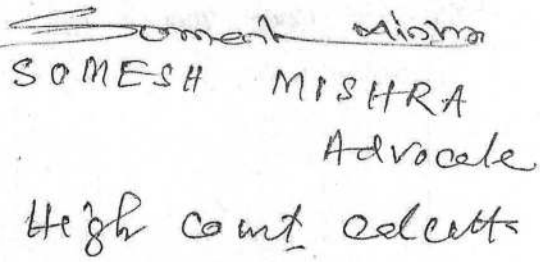 Somesh Mishra
SOMESH MISHRA
Advocate
High court Calcutta